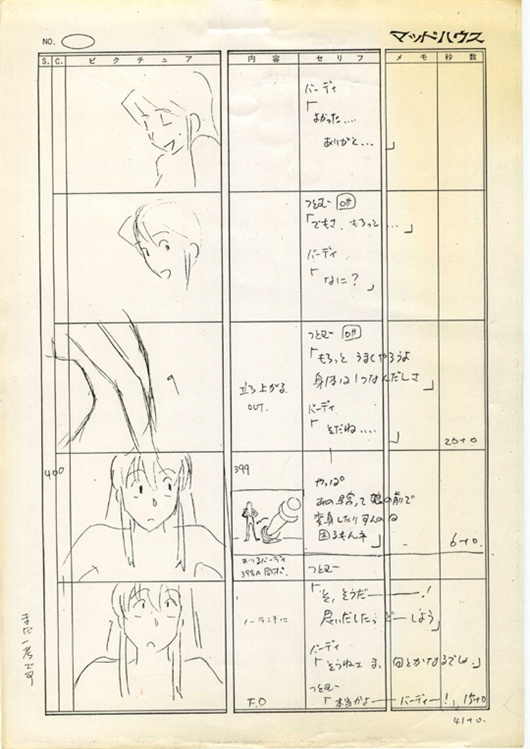 NO.
マッドハウス
S. C. ピクチュア 内容 セリフ メモ 秒数
バーディ
「よかった....
ありがと...」
つとむ off
「でもさ、もろっと...」
バーディ
「なに?」
つとむ off
「もろっと うまくやろうよ
身体は1つなんだしさ」
立ち上がる
OUT.
バーディ
「そだね....」
20+0
400
399
やっぱ
の前で
変身したり
困るもんネ」
6+0.
つとむ
「そ、そうだ――!
思いだしたっ どーしよう」
バーディ
「そうねェ ま、何とかなるでしょ」
つとむ
「本当かよー バーディー!」
15+0
F.O
41+0.